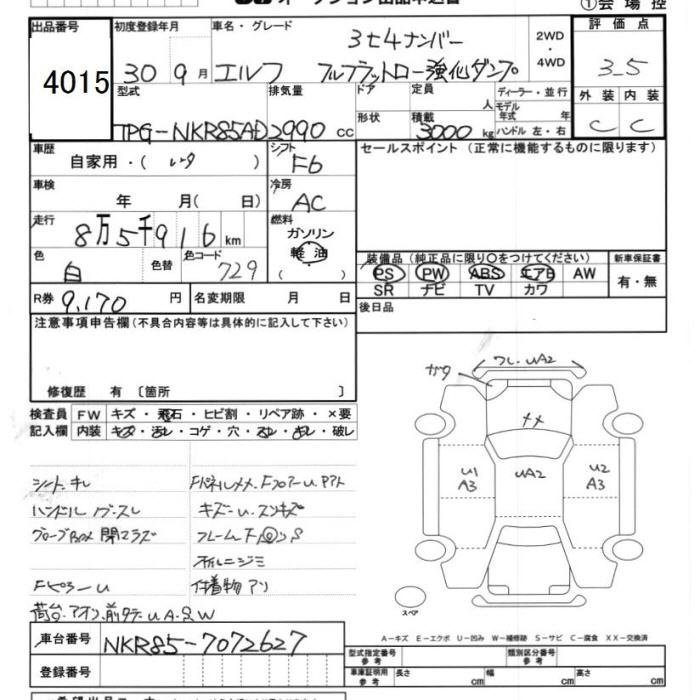 ①会場控
出品番号
4015
初度登録年月
30 9月
車名・グレード
3t4ナンバー
エルフ フルフラットロー強化ダンプ
2WD
・
4WD
評価点
3.5
外装 内装
C C
型式
TPG-NKR85AD
排気量
2990 cc
ドア
形状
定員
人
積載
3000 kg
ディーラー・並行
モデル年式 年
ハンドル 左・右
車歴
自家用・( )
シフト
F6
車検
年 月( 日)
冷房
AC
走行
8万5千916 km
燃料
ガソリン
軽油
( )
色
白
色替
色コード
729
R券
9,170 円
名変期限 月 日
セールスポイント (正常に機能するものに限ります)
装備品 (純正品に限り○をつけてください)
PS PW ABS エアB AW
SR ナビ TV カワ
新車保証書
有・無
後日品
注意事項申告欄(不具合内容等は具体的に記入して下さい)
修復歴 有〔箇所 〕
検査員
記入欄
FW キズ・飛石・ヒビ割・リペア跡・×要
内装 キズ・汚レ・コゲ・穴・スレ・キレ・破レ
シートキレ
ハンドル ノブスレ
グローブBox 閉マラズ
Fピラーu
キズ・u・スリキズ
フレーム下回リS
付着物アリ
荷台アオリ
フレ.UA2
ガタ
メメ
u1
A3
uA2
u2
A3
スペア
A−キズ E−エクボ U−凹み W−補修跡 S−サビ C−腐食 XX−交換済
車台番号
NKR85-7072627
登録番号
型式指定番号
参考
類別区分番号
参考
車庫証明用
参考
長さ cm
幅 cm
高さ cm